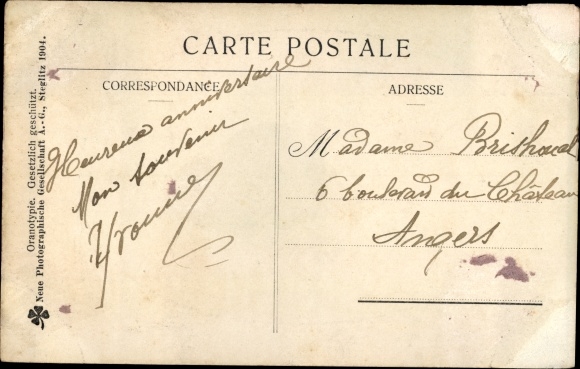 CARTE POSTALE
CORRESPONDANCE
Heureux anniversaire
Mon souvenir
Yvonne
ADRESSE
Madame
6 boulevard du Château
Angers
Oranotypie. Gesetzlich geschützt.
Neue Photographische Gesellschaft A.-G., Steglitz 1904.